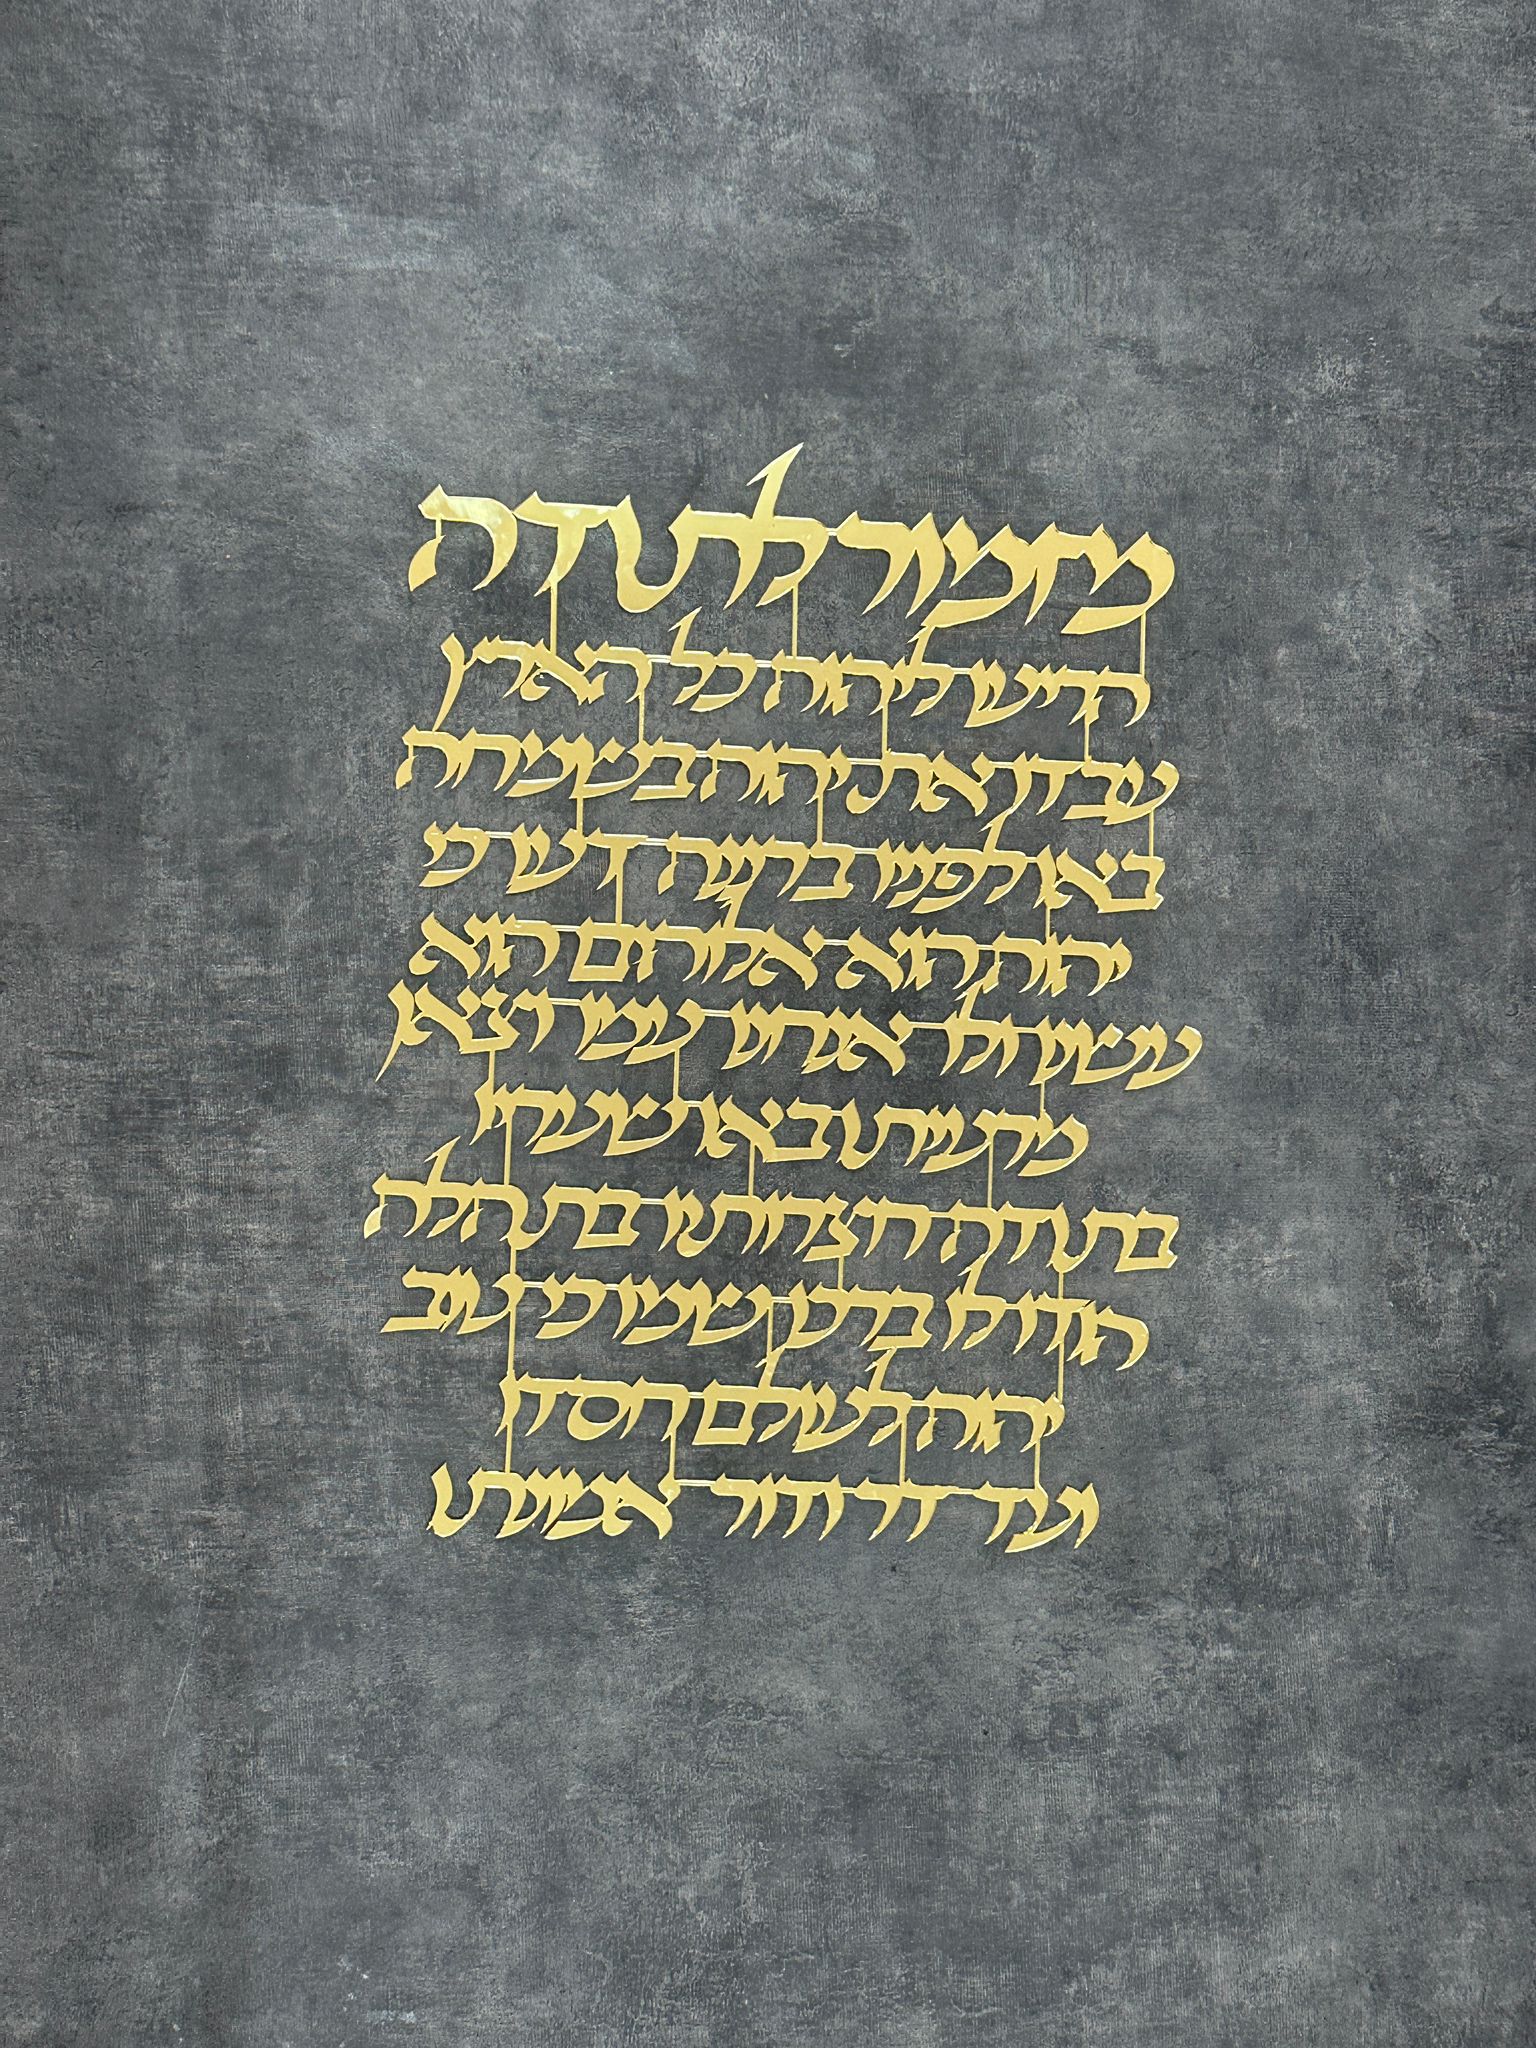 מזמור לתודה
הריעו ליהוה כל הארץ
עבדו את יהוה בשמחה
באו לפניו ברננה דעו כי
יהוה הוא אלוהים הוא
עשנו ולו אנחנו עמו וצאן
מרעיתו באו שעריו
בתודה חצרותיו בתהלה
הודו לו ברכו שמו כי טוב
יהוה לעולם חסדו
ועד דר ודור אמונתו